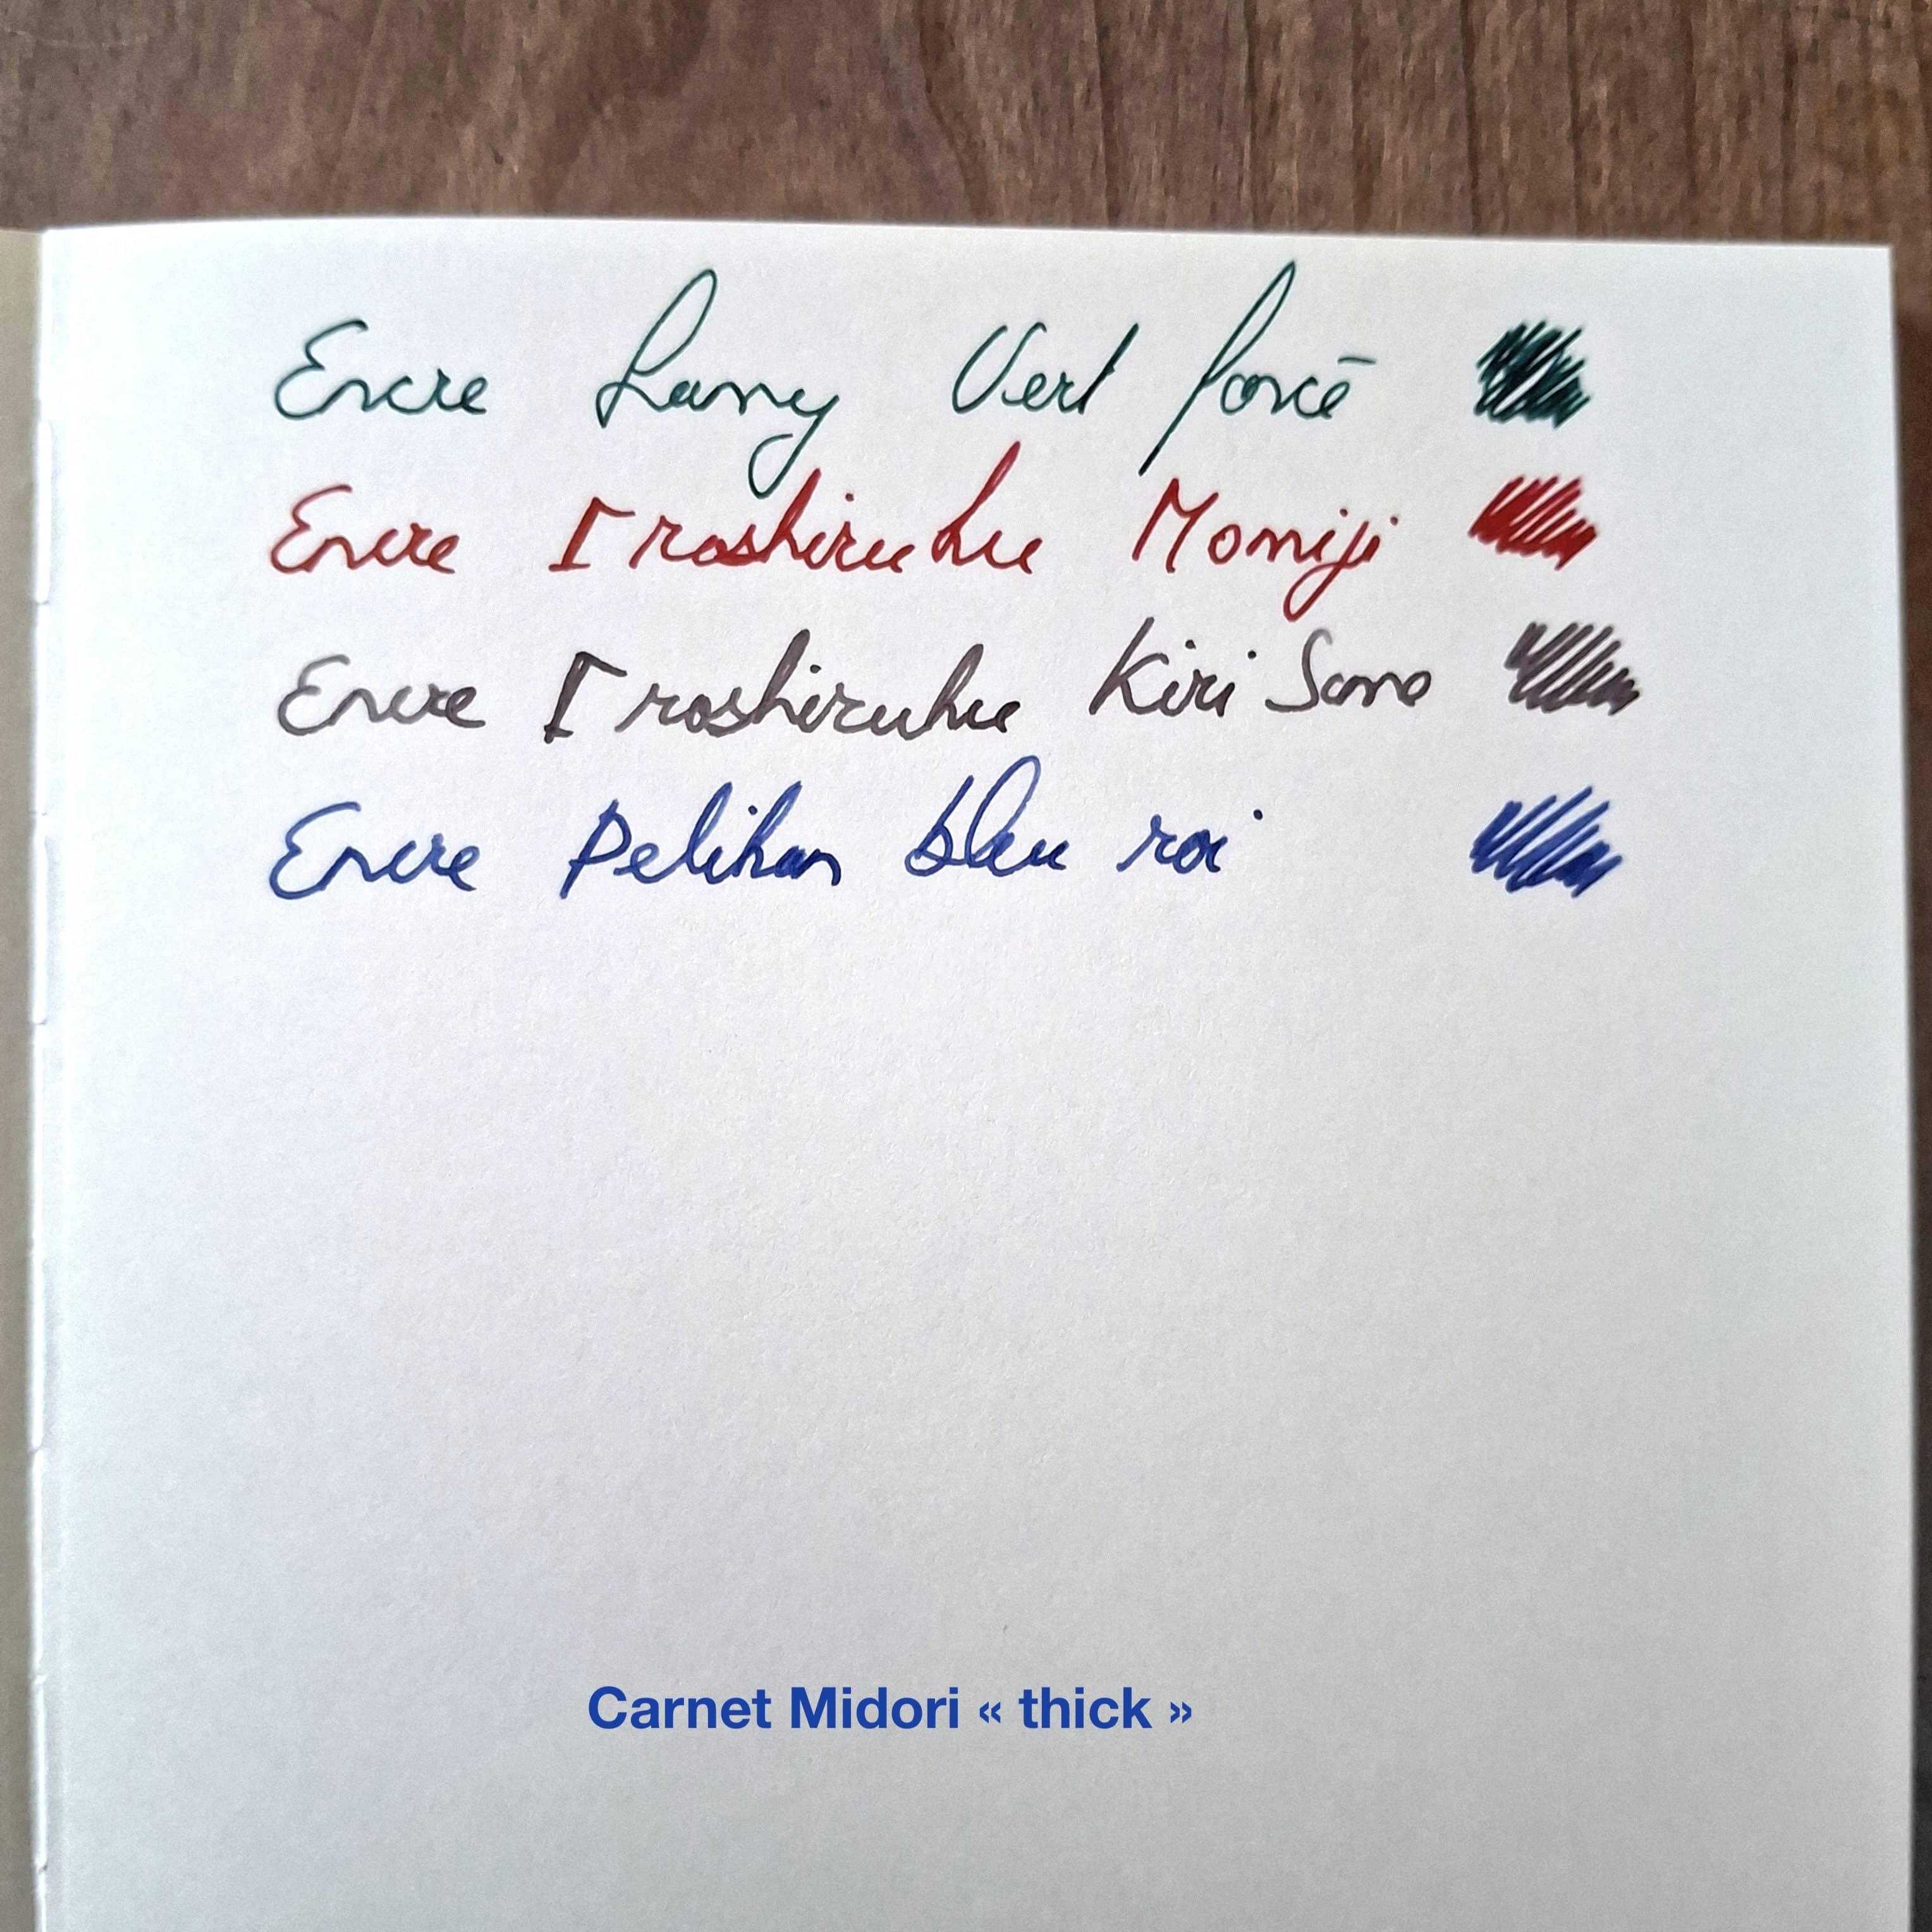 Encre Lamy Vert foncé
Encre Iroshizuku Momiji
Encre Iroshizuku Kiri Same
Encre Pelikan bleu roi
Carnet Midori « thick »